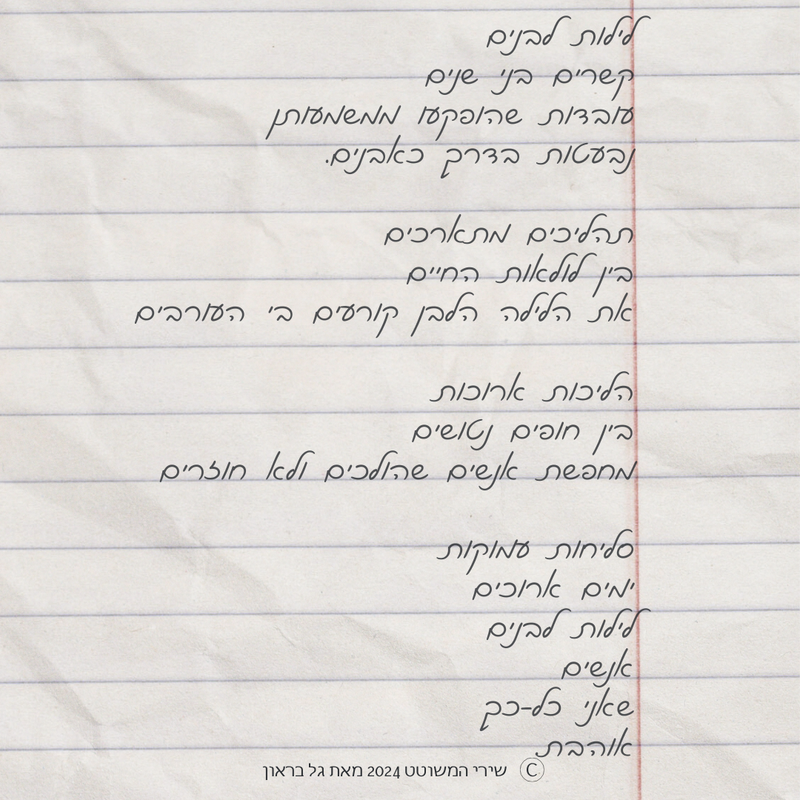 לילות לבנים
קשרים בני שנים
עובדות שהופקעו ממשמעותן
נבעטות בדרך כאבנים.
תהליכים מתארכים
בין לולאות החיים
את הלילה הלבן קורעים בי העורבים
הליכות ארוכות
בין חופים נטושים
מחפשת אנשים שהולכים ולא חוזרים
סליחות עמוקות
ימים ארוכים
לילות לבנים
אנשים
שאני כל-כך
אוהבת.
© שירי המשוטט 2024 מאת גל בראון